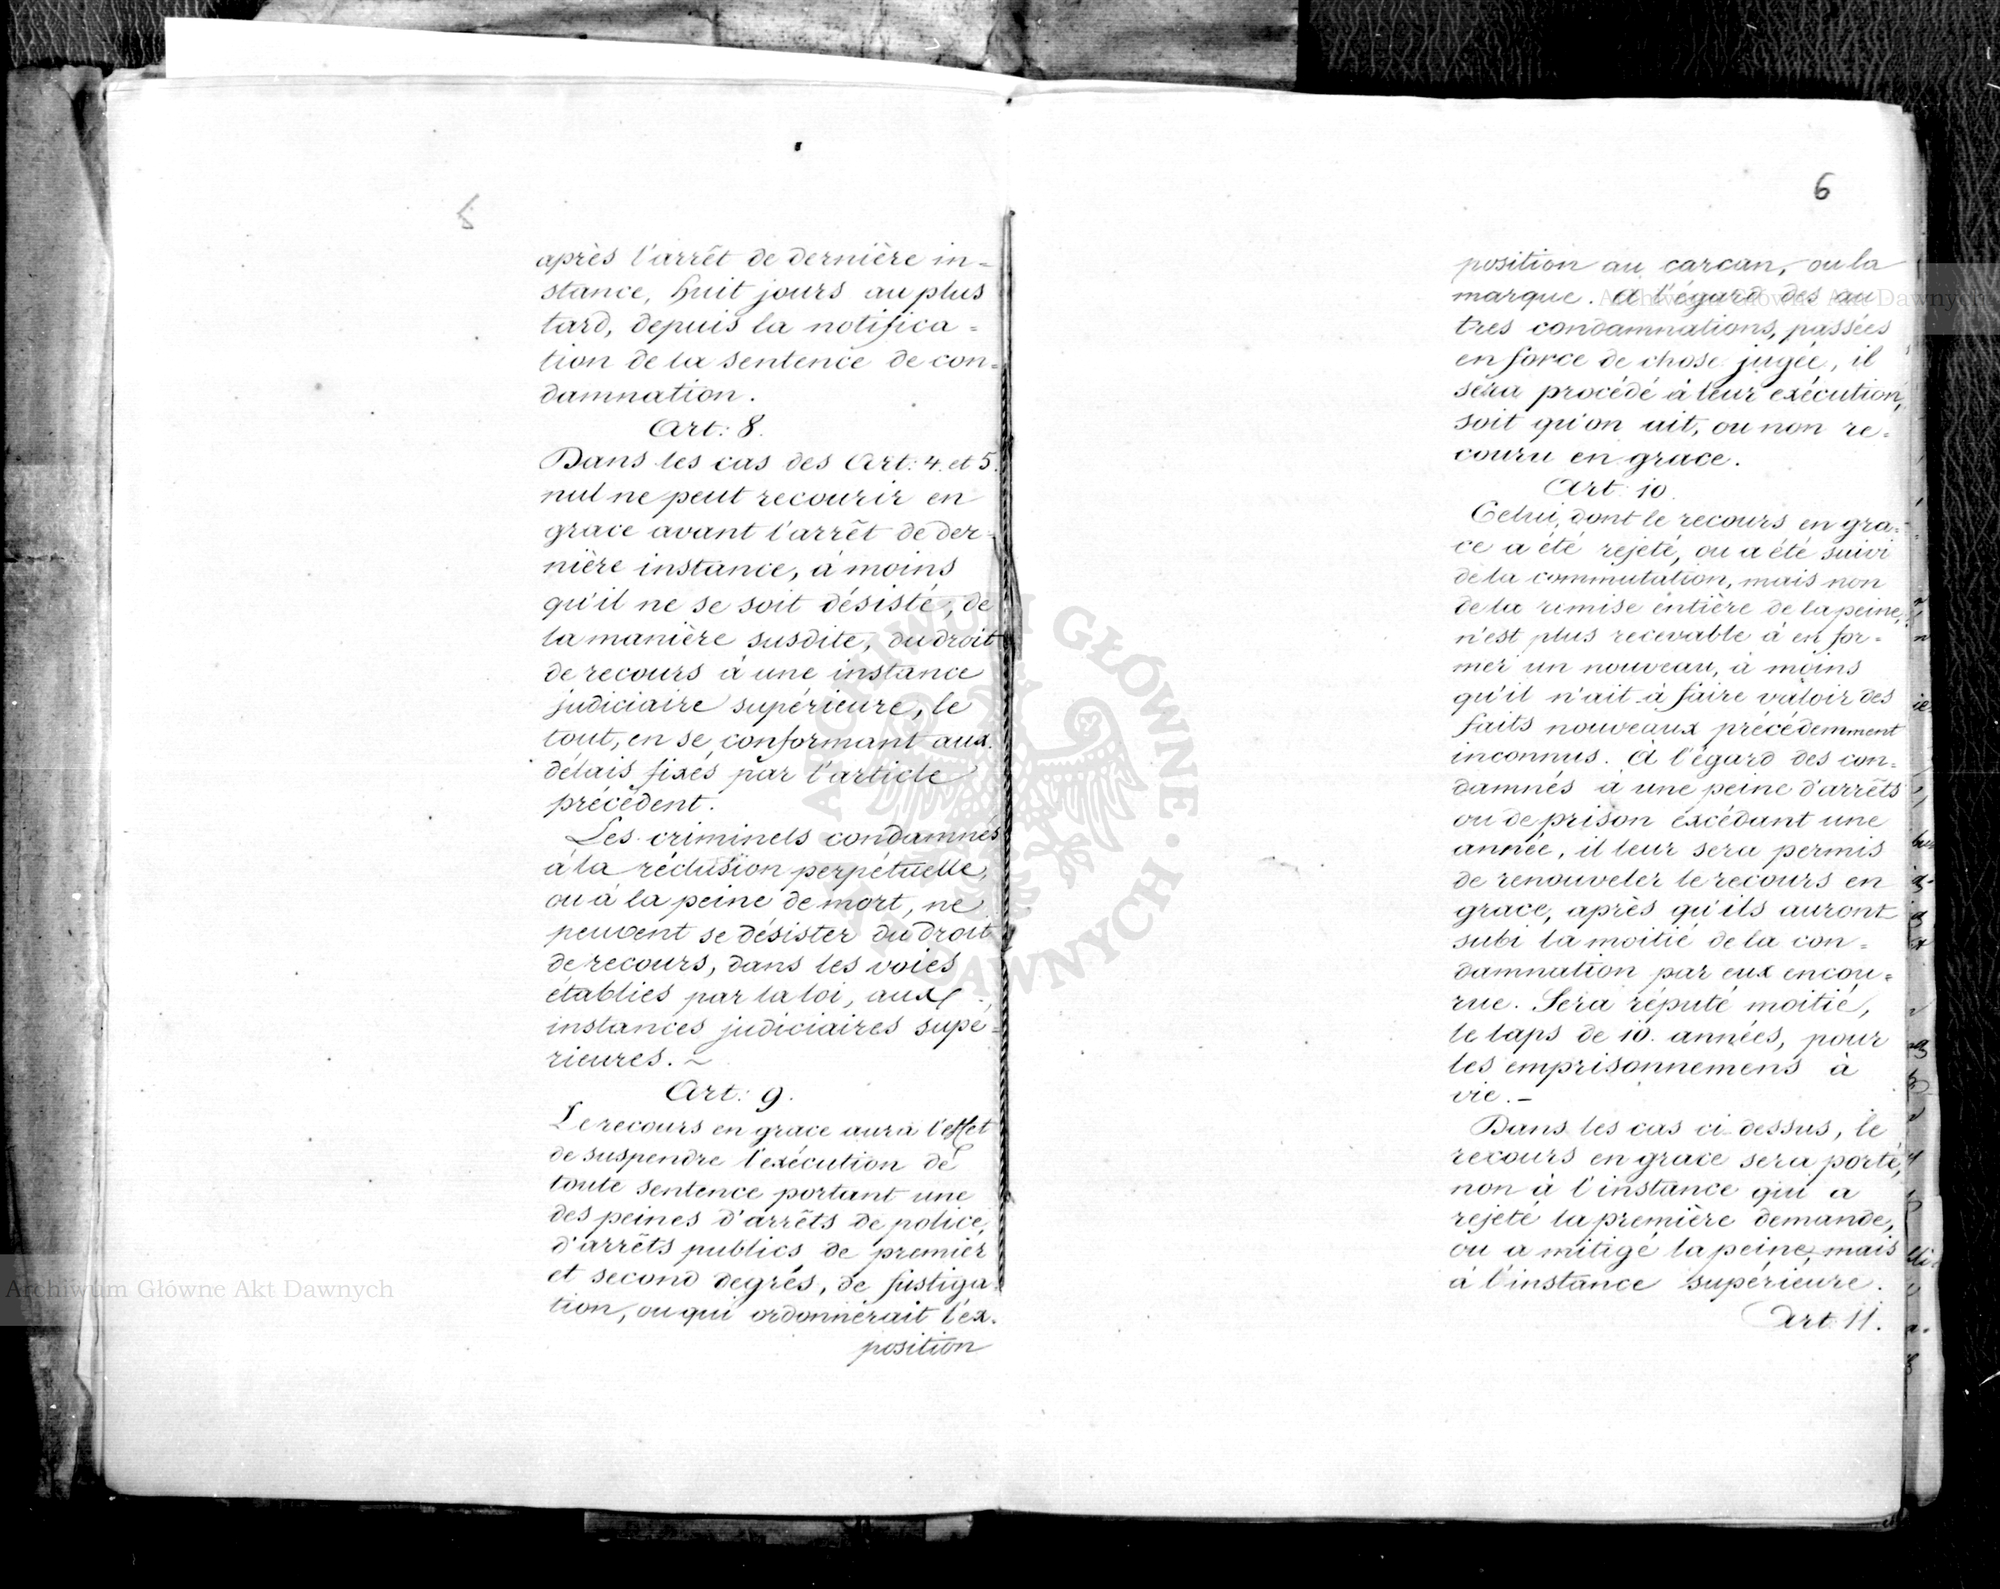 5
après l'arrêt de dernière in=
stance, huit jours au plus
tard, depuis la notifica=
tion de la sentence de con=
damnation.
Art: 8.
Dans les cas des Art: 4. et 5.
nul ne peut recourir en
grace avant l'arrêt de der=
nière instance, à moins
qu'il ne se soit désisté, de
la manière susdite, du droit
de recours à une instance
judiciaire supérieure, le
tout, en se conformant aux
délais fixés par l'article
précédent.
Les criminels condamnés
à la réclusion perpétuelle,
ou à la peine de mort, ne
peuvent se désister du droit
de recours, dans les voies
établies par la loi, aux
instances judiciaires supé=
rieures. ~
Art: 9.
Le recours en grace aura l'effet
de suspendre l'exécution de
toute sentence portant une
des peines d'arrêts de police,
d'arrêts publics de premier
et second degrés, de fustiga=
tion, ou qui ordonnerait l'ex=
position
6
position au carcan, ou la
marque. A l'égard des au
tres condamnations, passées
en force de chose jugée, il
séra procédé à leur exécution,
soit qu'on ait, ou non re=
couru en grace.
Art: 10.
Celui, dont le recours en gra=
ce a été rejeté, ou a été suivi
de la commutation, mais non
de la remise entière de la peine,
n'est plus recevable à en for=
mer un nouveau, à moins
qu'il n'ait à faire valoir des
faits nouveaux précédemment
inconnus. A l'égard des con=
damnés à une peine d'arrêts
ou de prison excédant une
année, il leur sera permis
de renouveler le recours en
grace, après qu'ils auront
subi la moitié de la con=
damnation par eux encou=
rue. Sera réputé moitié,
le laps de 10. années, pour
les emprisonnemens à
vie. –
Dans les cas ci-dessus, le
recours en grace sera porté,
non à l'instance qui a
rejeté la première demande,
ou a mitigé la peine, mais
à l'instance supérieure.
Art: 11.
Archiwum Główne Akt Dawnych
Archiwum Główne Akt Dawnych
ARCHIWUM GŁÓWNE · AKT DAWNYCH ·